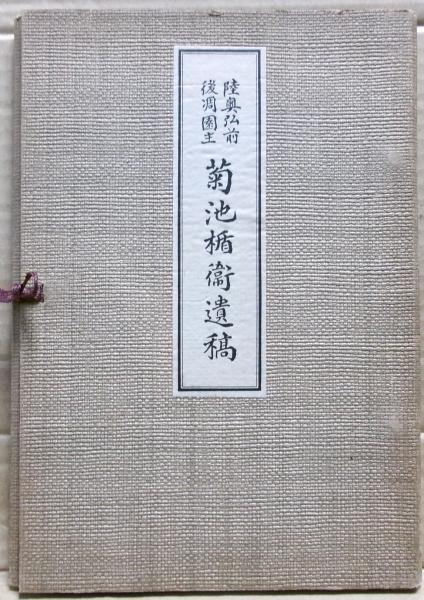 陸奥弘前
後凋園主
菊池楯衞遺稿